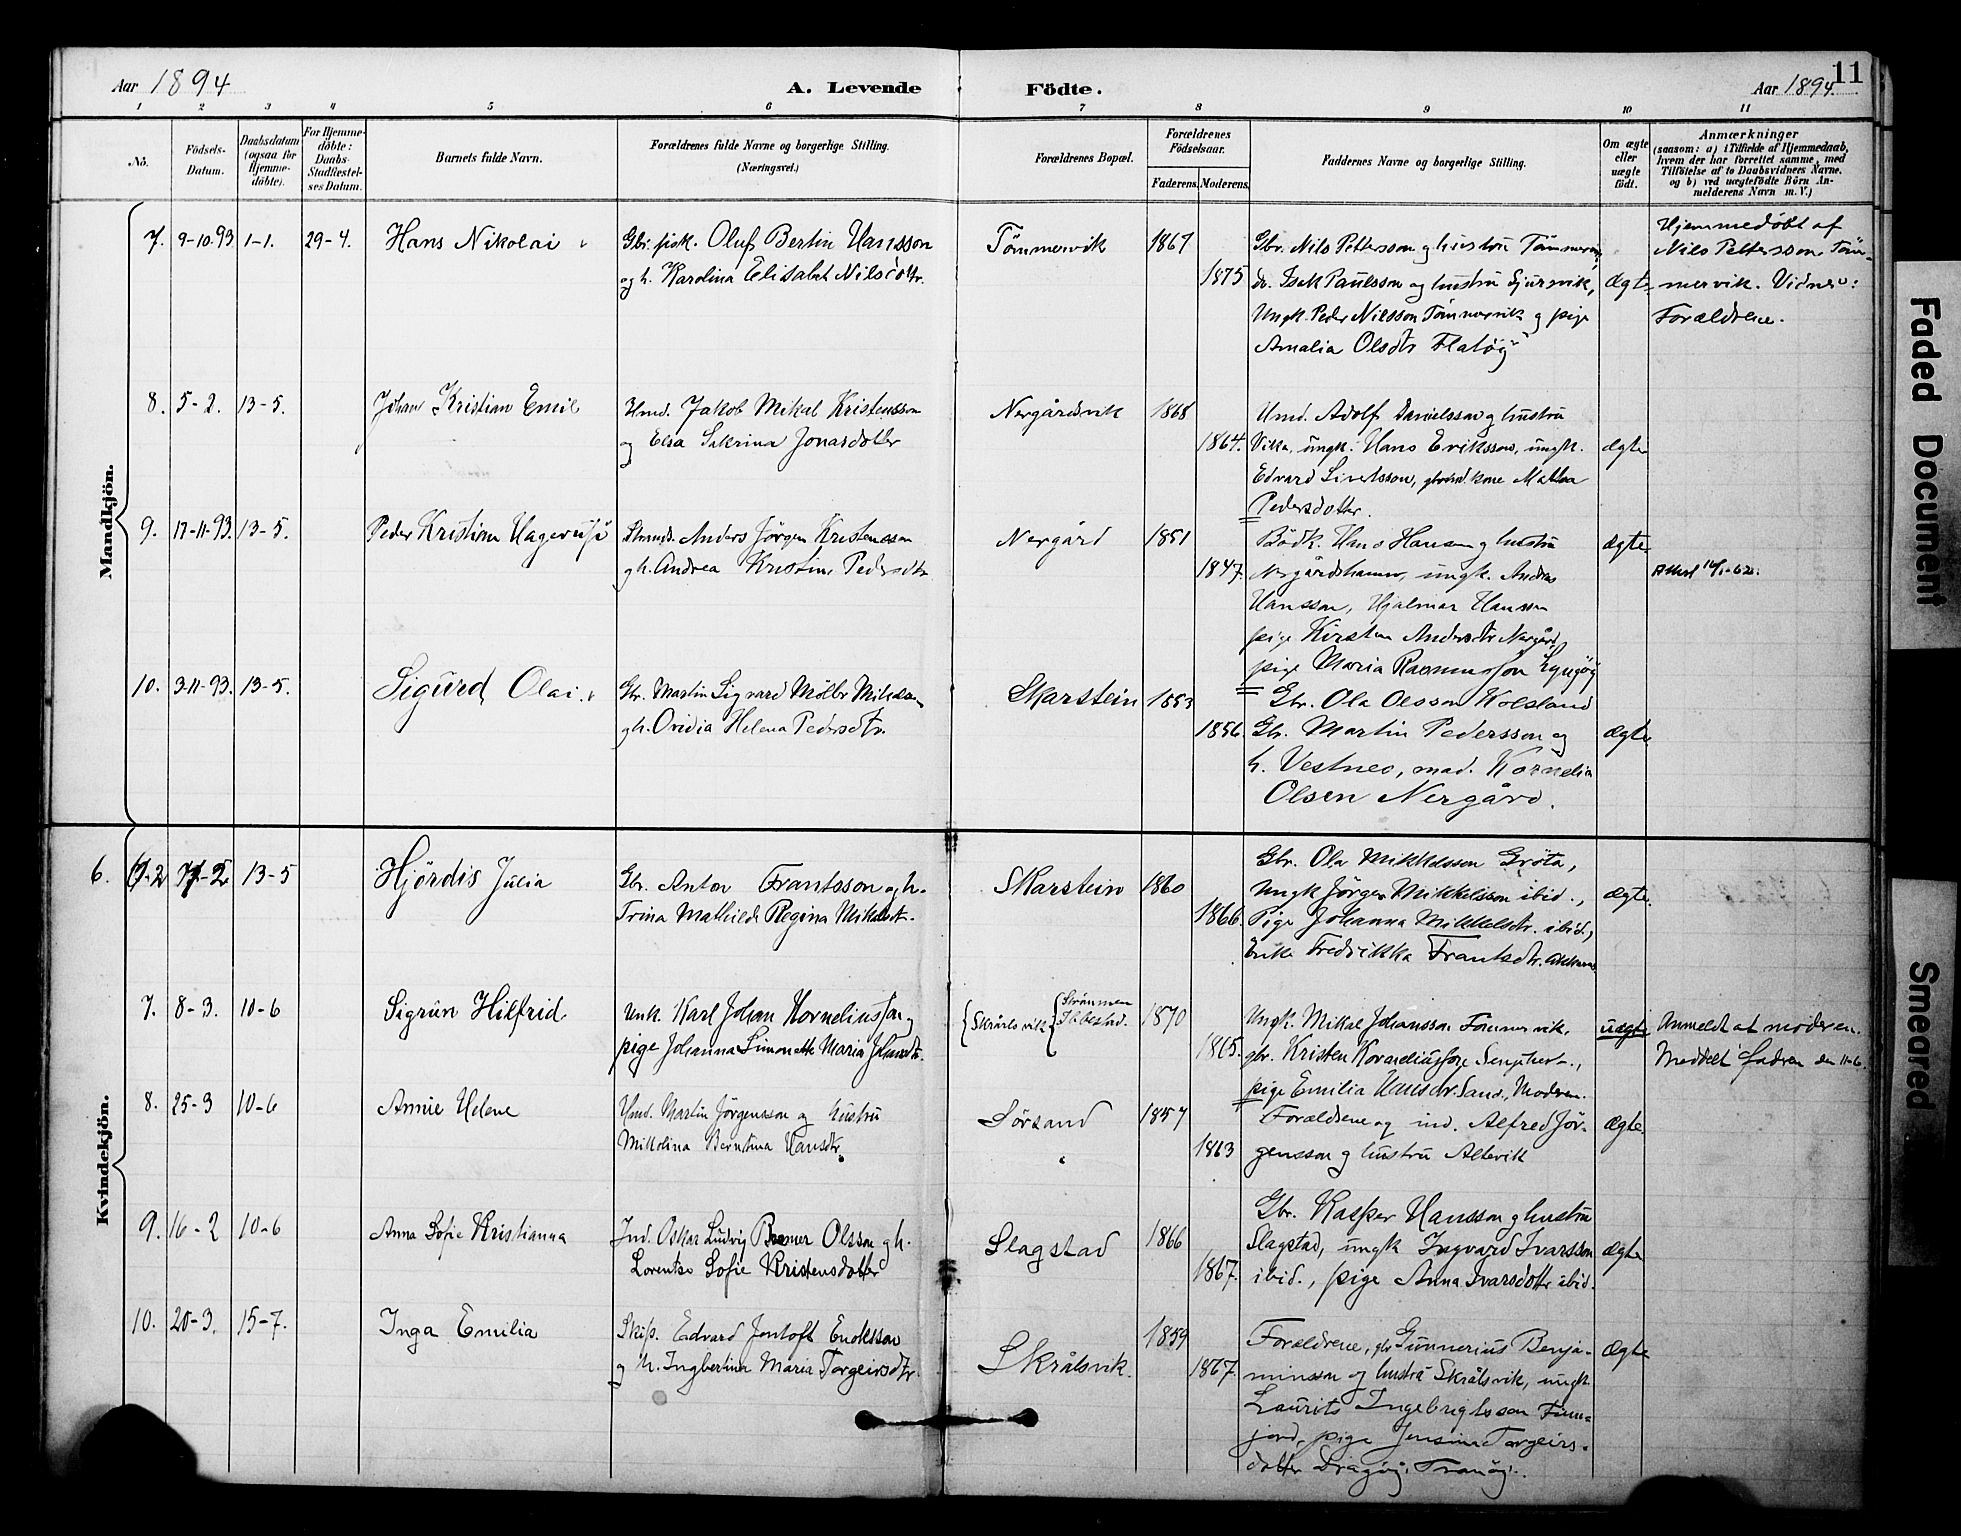 Aar 1894 A. Levende Födte. Aar 1894. 11
1 2 3 4 5 6 7 8 9 10 11
No. Födsels-Datum. Daabsdatum (ogsaa for Hjemme-döbte). For Hjemme-döbte: Daabs-Stadfæstel-ses Datum. Barnets fulde Navn. Forældrenes fulde Navne og borgerlige Stilling. (Næringsvei.) Forældrenes Bopæl. Forældrenes Födselsaar. Faderens. Moderens. Faddernes Navne og borgerlige Stilling. Om ægte eller uægte födt. Anmærkninger
(saasom: a) i Tilfælde af Hjemmedaab, hvem der har forrettet samme, med Tilföielse af to Daabsvidners Navne. og b) ved uægtefödte Börn Anmelderens Navn m. V.)
Mandkjön.
7. 9-10.93 1-1. 29-4. Hans Nikolai
Gbr. fisk. Oluf Bertin Hansson
og h. Karolina Elisabet Nilsdotr.
Tömmervik 1867
1875
Gbr. Nils Pettersson og hustru Tömmervik,
do. Isak Paulsson og hustru Gjursvik,
Ungk. Peder Nilsson Tömmervik og pige
Amalia Olsdtr Flatöy
ægte
Hjemmedöbt af
Nils Pettersson Töm-
mervik. Vidner:
Forældrene.
8. 5-2. 13-5. Johan Kristian Emil
Hmd. Jakob Mikal Kristensson
og Elsa Sakrina Jonasdotter
Nergårdsvik 1868
1864.
Hmd. Adolf Danielsson og hustru
Vika, ungk. Hans Eriksson, ungk.
Edvard Sivertsson, kone
Pedersdotter.
ægte
9. 17-11-93. 13-5. Peder Kristian
Anders Jörgen Kristensson
og h. Andrea Kristine Pedersdtr
Nergård 1851
1847.
Bödk. Hans Hansen og hustru
Nergårdshamn, ungk. Andreas
Hansson, Hjalmar Hansson
pige Kirstin Andersdtr Nergård,
pige Maria Rasmussen
ægte
10. 3-11-93. 13-5. Sigurd Olai.
Gbr. Martin Sigvard
og h. Ovidia Helena Pedersdtr.
Skarstein 1853
1856.
Gbr. Ola Olsson Kolsland
Gbr. Martin Pedersson og
h. Vestnes, mad. Kornelia
Olsen Nergård.
ægte
Kvindekjön.
6. 13-5 Hjördis Julia
Gbr. Anton Frantsson og h.
Trina Mathilde Regina Mikalsdtr.
Skarstein 1860
1866.
Gbr. Ola Mikkelsson Gröta,
Ungk Jörgen Mikkelsson ibid.,
Pige Johanna Mikkelsdtr. ibid.,
Enke Fredrikka Frantsdtr.
ægte.
7. 8-3. 10-6 Sigrun Hilfrid
Unk. Karl Johan Korneliusson og
pige Johanna Simonette Maria Johansdtr.
Skrålsvik Strömmen
1870
1865.
Ungk. Mikal Johansson Tömmervik,
gbr. Kristen Korneliusson
pige Emilia Hansdtr. Sand, Moderen.
uægte
Anmeldt af moderen.
Meddelt fadren den 11-6.
8. 25-3 10-6 Annie Helene
Hmd. Martin Jörgensson og hustru
Mikolina Berntina Hansdtr.
Sörsand 1857
1863
Forældrene og ind. Alfred Jör-
gensson og hustru Altevik
ægte.
9. 16-2 10-6 Anna Sofie Kristianna
Ind. Oskar Ludvig Olsson og h.
Lorentse Sofie Kristensdotter
Slagstad 1866
1867.
Gbr. Kasper Hansson og hustru
Slagstad, ungk Ingvard Ivarsson
ibid., pige Anna Ivarsdotter ibid.
ægte
10. 20-3. 15-7. Inga Emilia
Skip. Edvard Jentoft Enoksson
og h. Ingbertina Maria Torgeirsdtr.
Skrålsvik. 1859
1867.
Forældrene, gbr Gunnerius Benja-
minsson og hustru Skrålsvik, ungk.
Laurits Ingebrigtsson Finn-
jord, pige Jensine Torgeirs-
dotter Dragöy, Tranöy.
ægte
Faded Document
Smeared